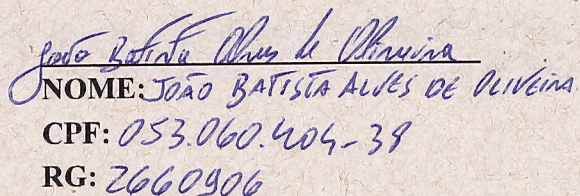 João Batista Alves de Oliveira
NOME: JOÃO BATISTA ALVES DE OLIVEIRA
CPF: 053.060.404-38
RG: 2660906